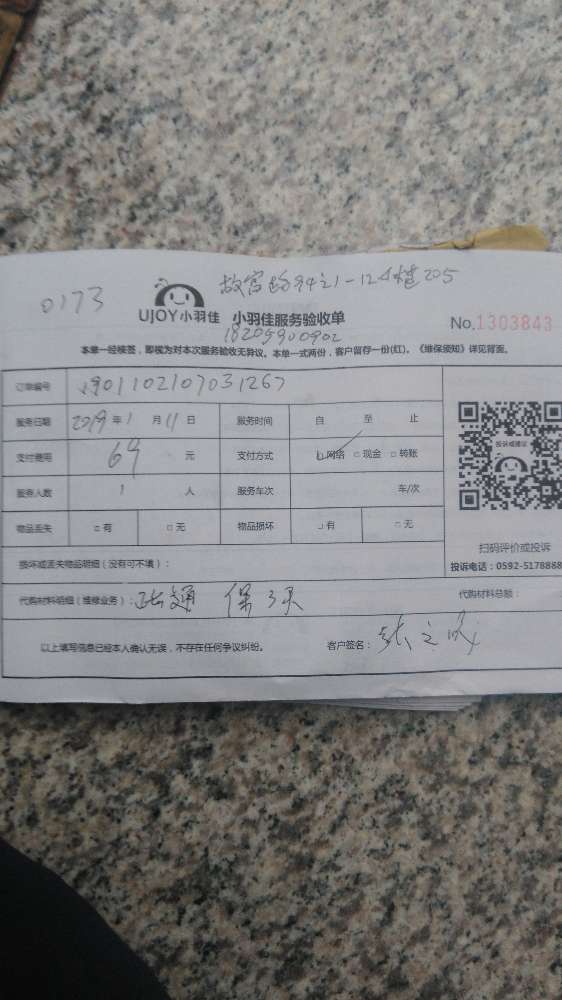 故宫路94之1-12楼205
0173
UJOY小羽佳 小羽佳服务验收单
18205900902
No.1303843
本单一经核签，即视为对本次服务验收无异议。本单一式两份，客户留存一份(红)。《维保须知》详见背面。
订单编号 1901102107031267
服务日期 2019年1月11日 服务时间 自 至 止
支付费用 69 元 支付方式 网络 现金 转账
服务人数 1 人 服务车次 车/次
物品丢失 有 无 物品损坏 有 无
投诉或建议
扫码评价或投诉
投诉电话：0592-5178888
损坏或丢失物品明细（没有可不填）：
代购材料明细（维修业务）： 通 保3天 代购材料总额：
以上填写信息已经本人确认无误，不存在任何争议纠纷。 客户签名： 张之